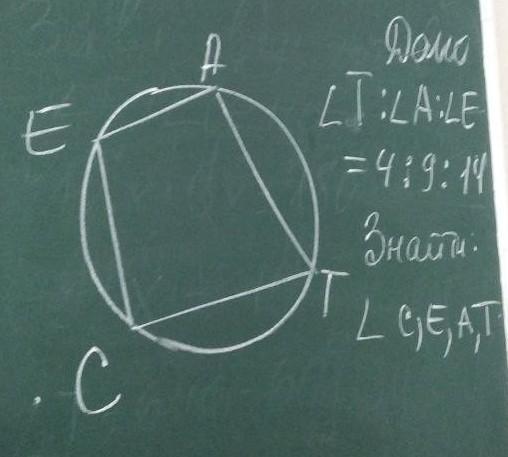 A
E
T
C
Дано
∠T:∠A:∠E
=4:9:14
Знайти:
∠ C,E,A,T